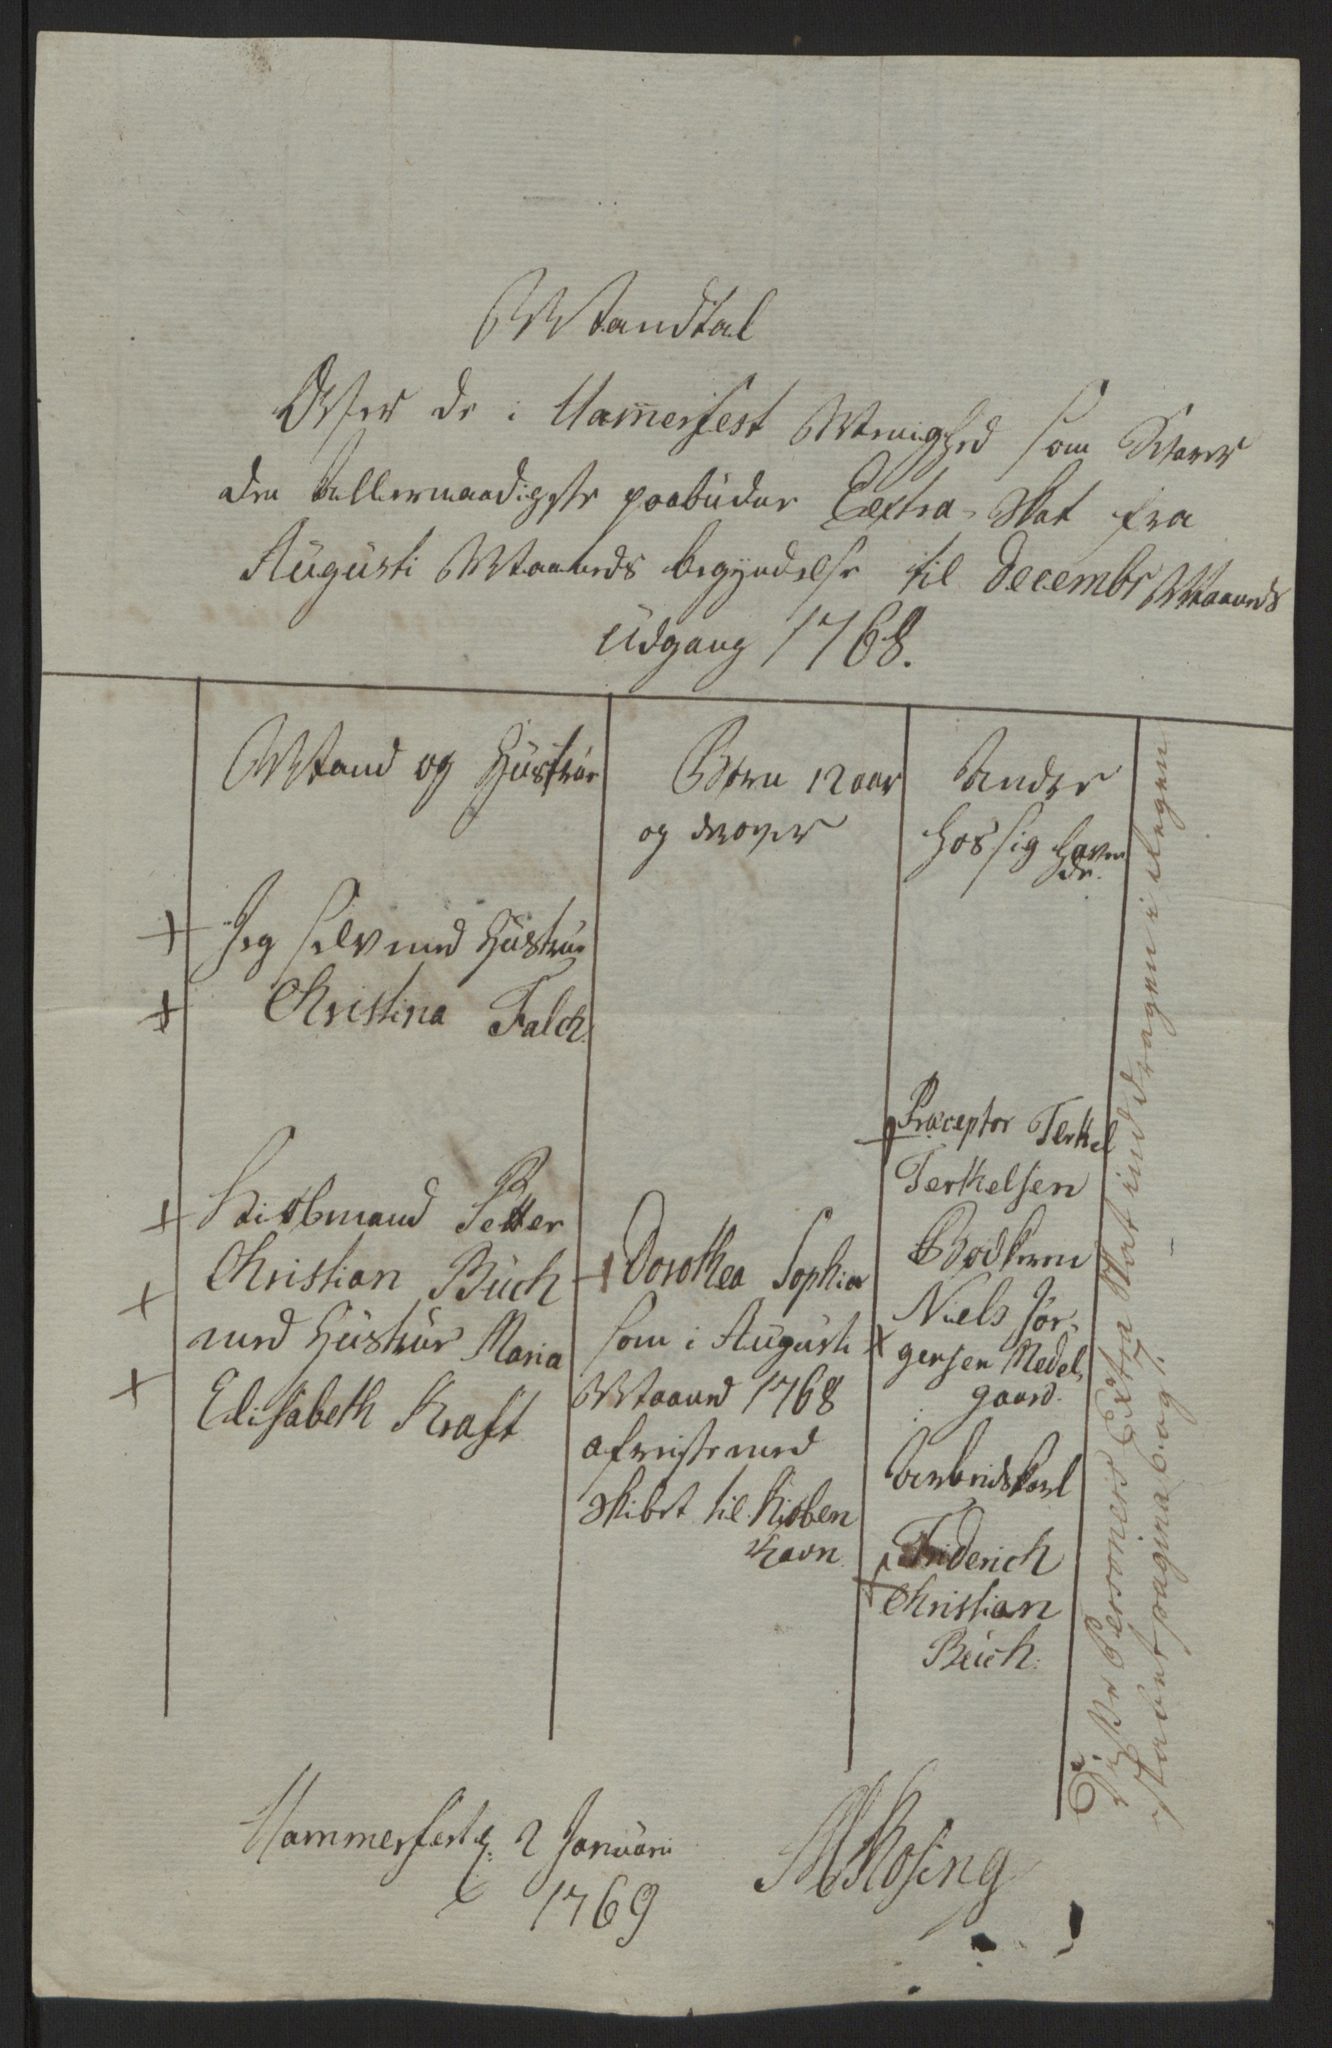 Mandtal
Over de i Hammerfest Menighed som Svarer
den allernaadigste paabudne Extra-Skat fra
Augusti Maaneds begyndelse til Decembr Maaneds
Udgang 1768.
Mand og Hustrue
Børn 12 aar
og derover
Andre
hos sig haven
de.
Jeg selv med Hustrue
Christina Falch.
Kiøbmand Petter
Christian Buch
med Hustrue Maria
Elisabeth Kraft
Dorothea Sophia
som i Augusti
Maaned 1768
afreiste med
Skibet til Kiøben
havn.
Præceptor Terkel
Terkelsen
Bødkeren
Niels Jør-
gensen Medel
gaard.
Arbeidskarl
Friderich
Christian
Buch.
Disse Personers Extra Skat inddragen i Regen
skabet pagina bog 1.
Hammerfest d. 2 Januarii
1769
Kosing